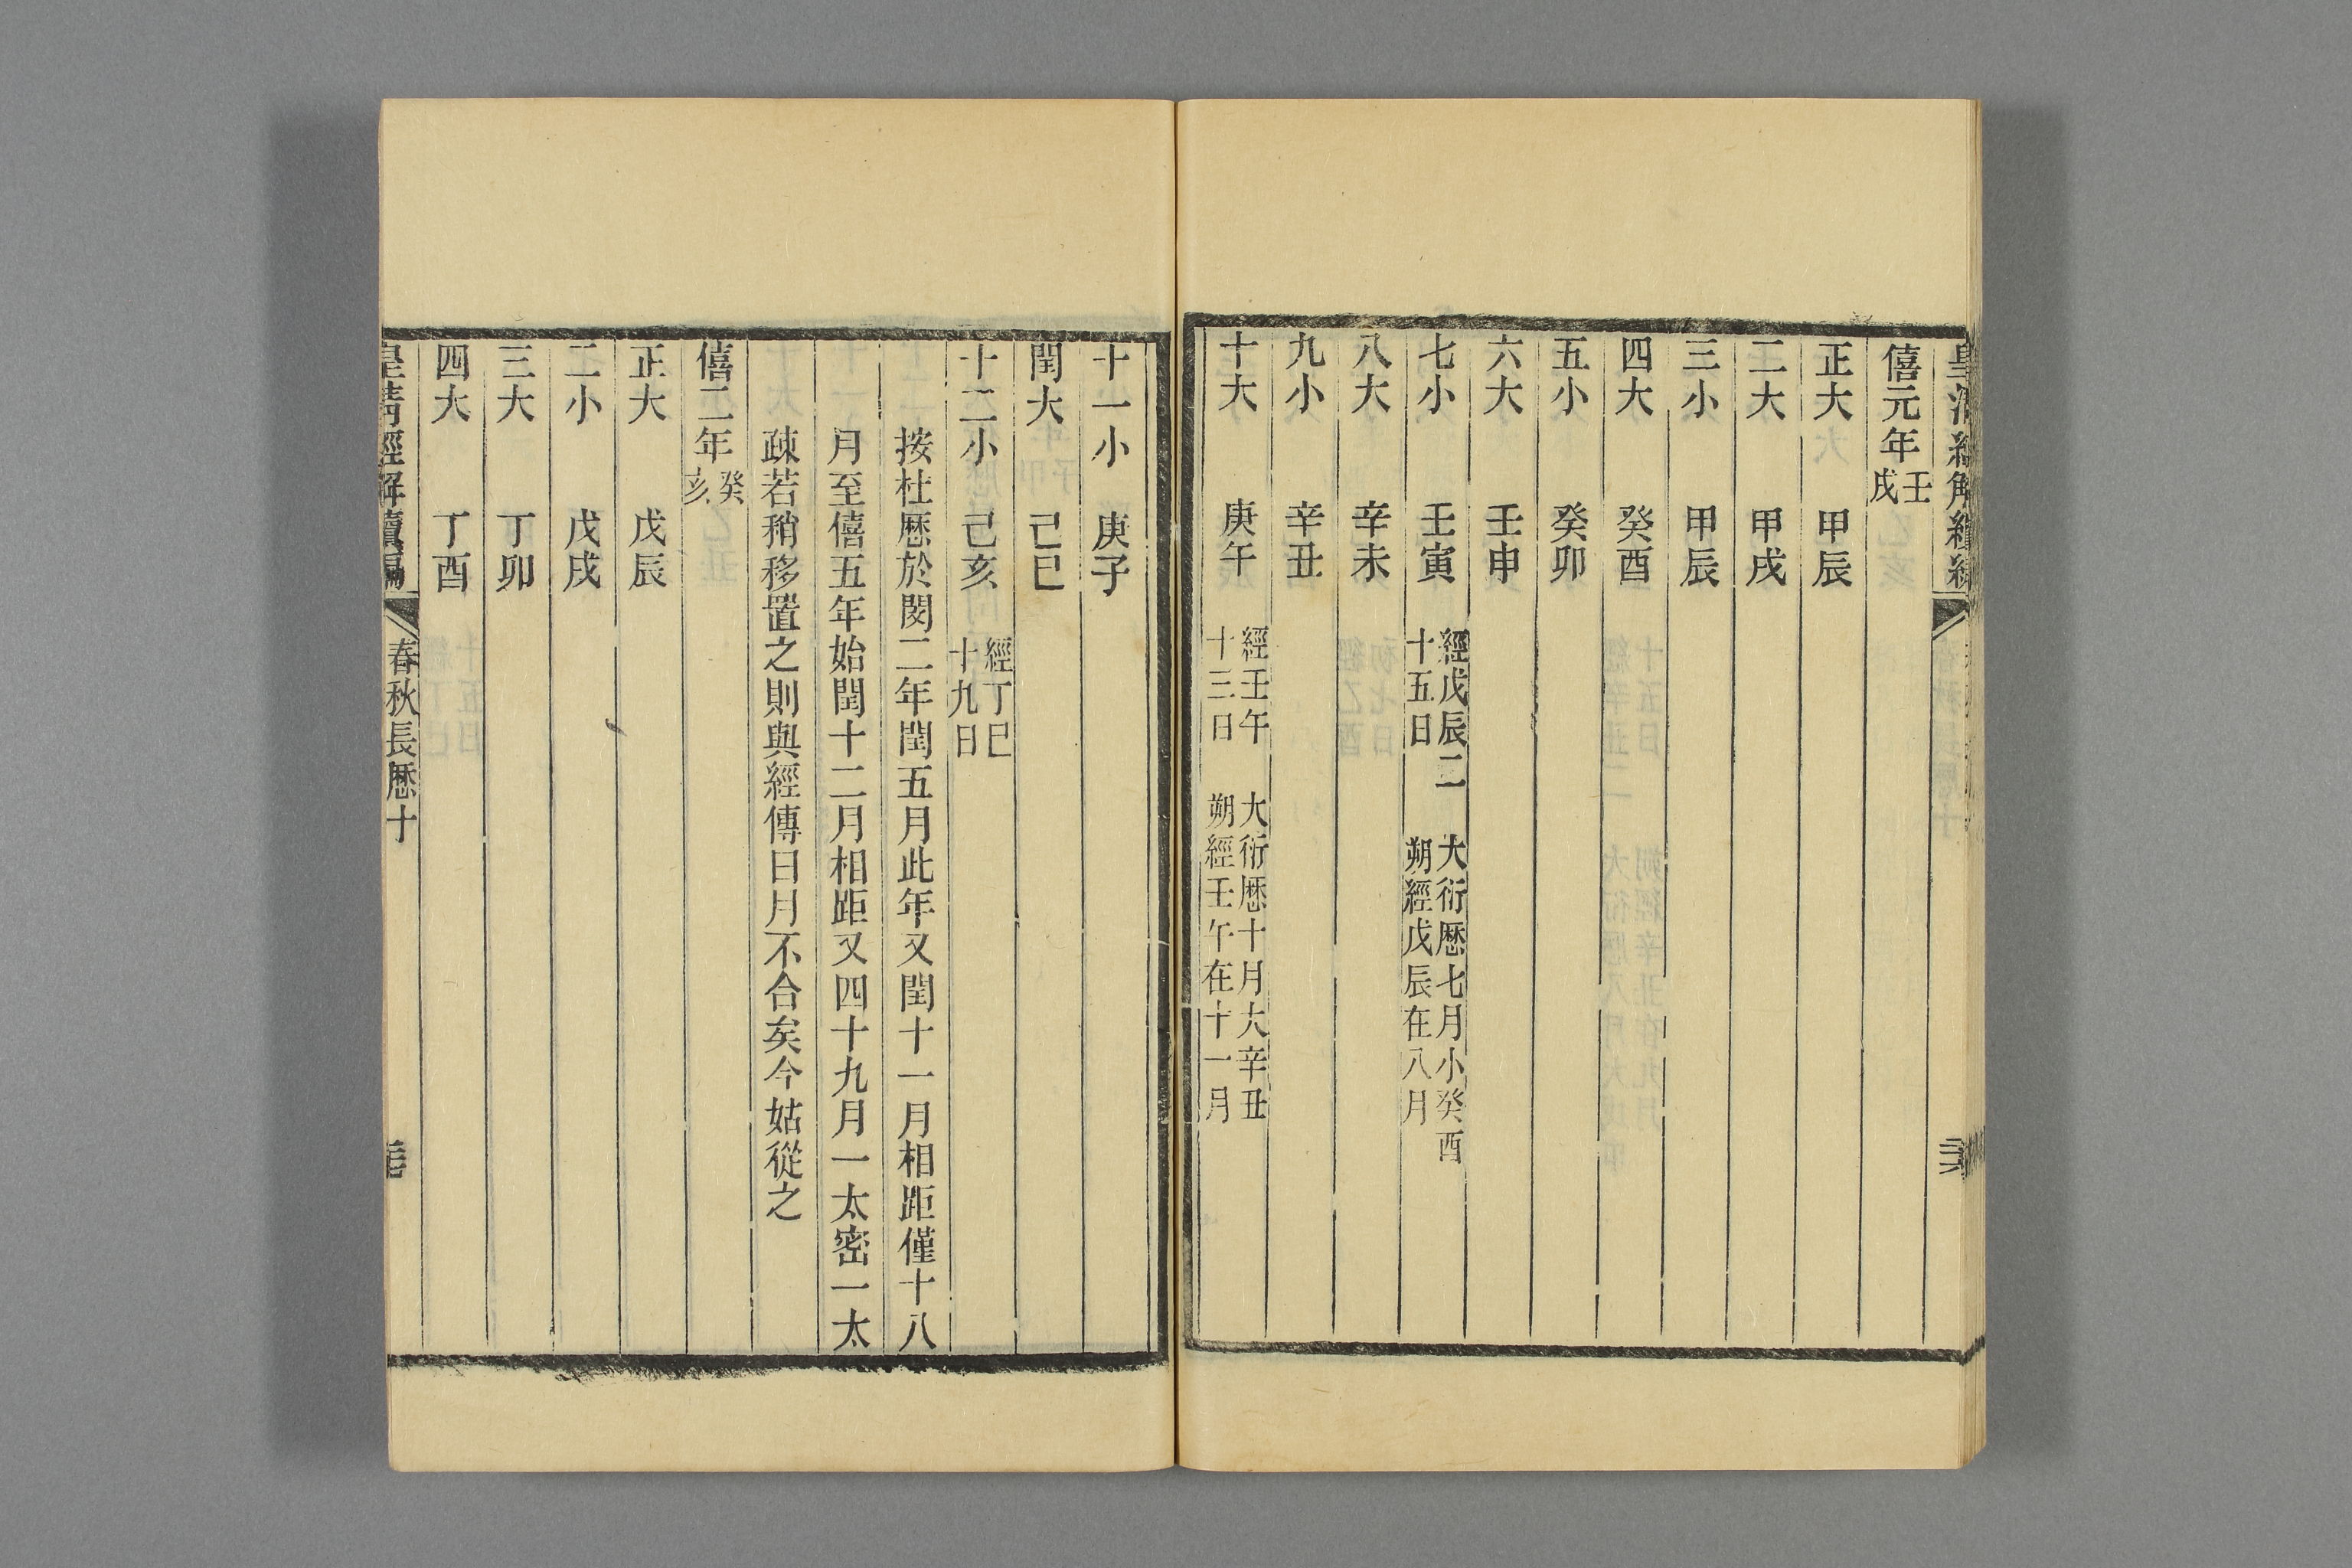 僖元年壬戌
正大　甲辰
二大　甲戌
三小　甲辰
四大　癸酉
五小　癸卯
六大　壬申
七小　壬寅　經戊辰二十五日　大衍厯七月小癸酉朔經戊辰在八月
八大　辛未
九小　辛丑
十大　庚午　經壬午十三日　大衍厯十月大辛丑朔經壬午在十一月
十一小　庚子
閏大　己巳
十二小　己亥　經丁巳十九日
按杜厯於閔二年閏五月此年又閏十一月相距僅十八
月至僖五年始閏十二月相距又四十九月一太密一太
疎若稍移置之則與經傳日月不合矣今姑從之
僖二年癸亥
正大　戊辰
二小　戊戌
三大　丁卯
四大　丁酉
皇清經解續編　春秋長厯十